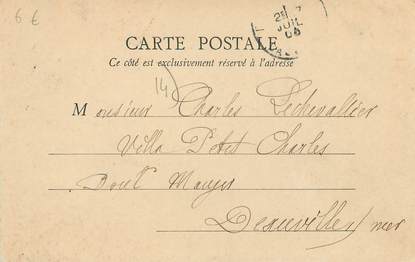 6 €
28 7
JUIL
CARTE POSTALE
Ce côté est exclusivement réservé à l'adresse
14
Monsieur Charles Lechevallier
Villa Petit Charles
Boul
Deauville s/ mer